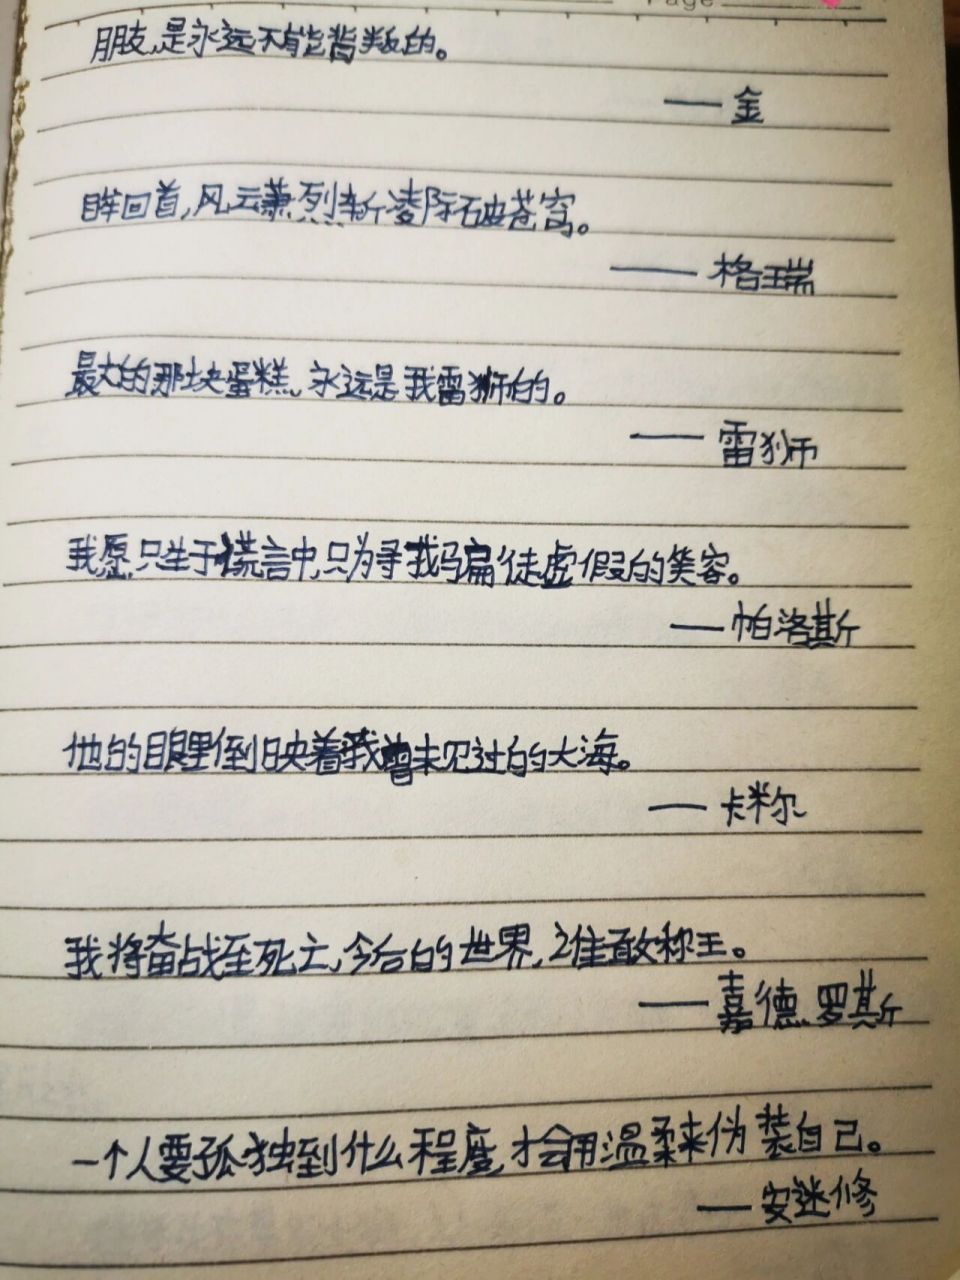 Page
朋友,是永远不能背叛的。
——金
眸回首,风云兼烈斩凌际破苍穹。
——格瑞
最大的那块蛋糕,永远是我雷狮的。
——雷狮
我愿只生于谎言中,只为寻找骗徒虚假的笑容。
——帕洛斯
他的眼里倒映着我曾未见过的大海。
——卡米尔
我将奋战至死亡,今后的世界,谁敢称王。
——嘉德罗斯
一个人要孤独到什么程度,才会用温柔来伪装自己。
——安迷修